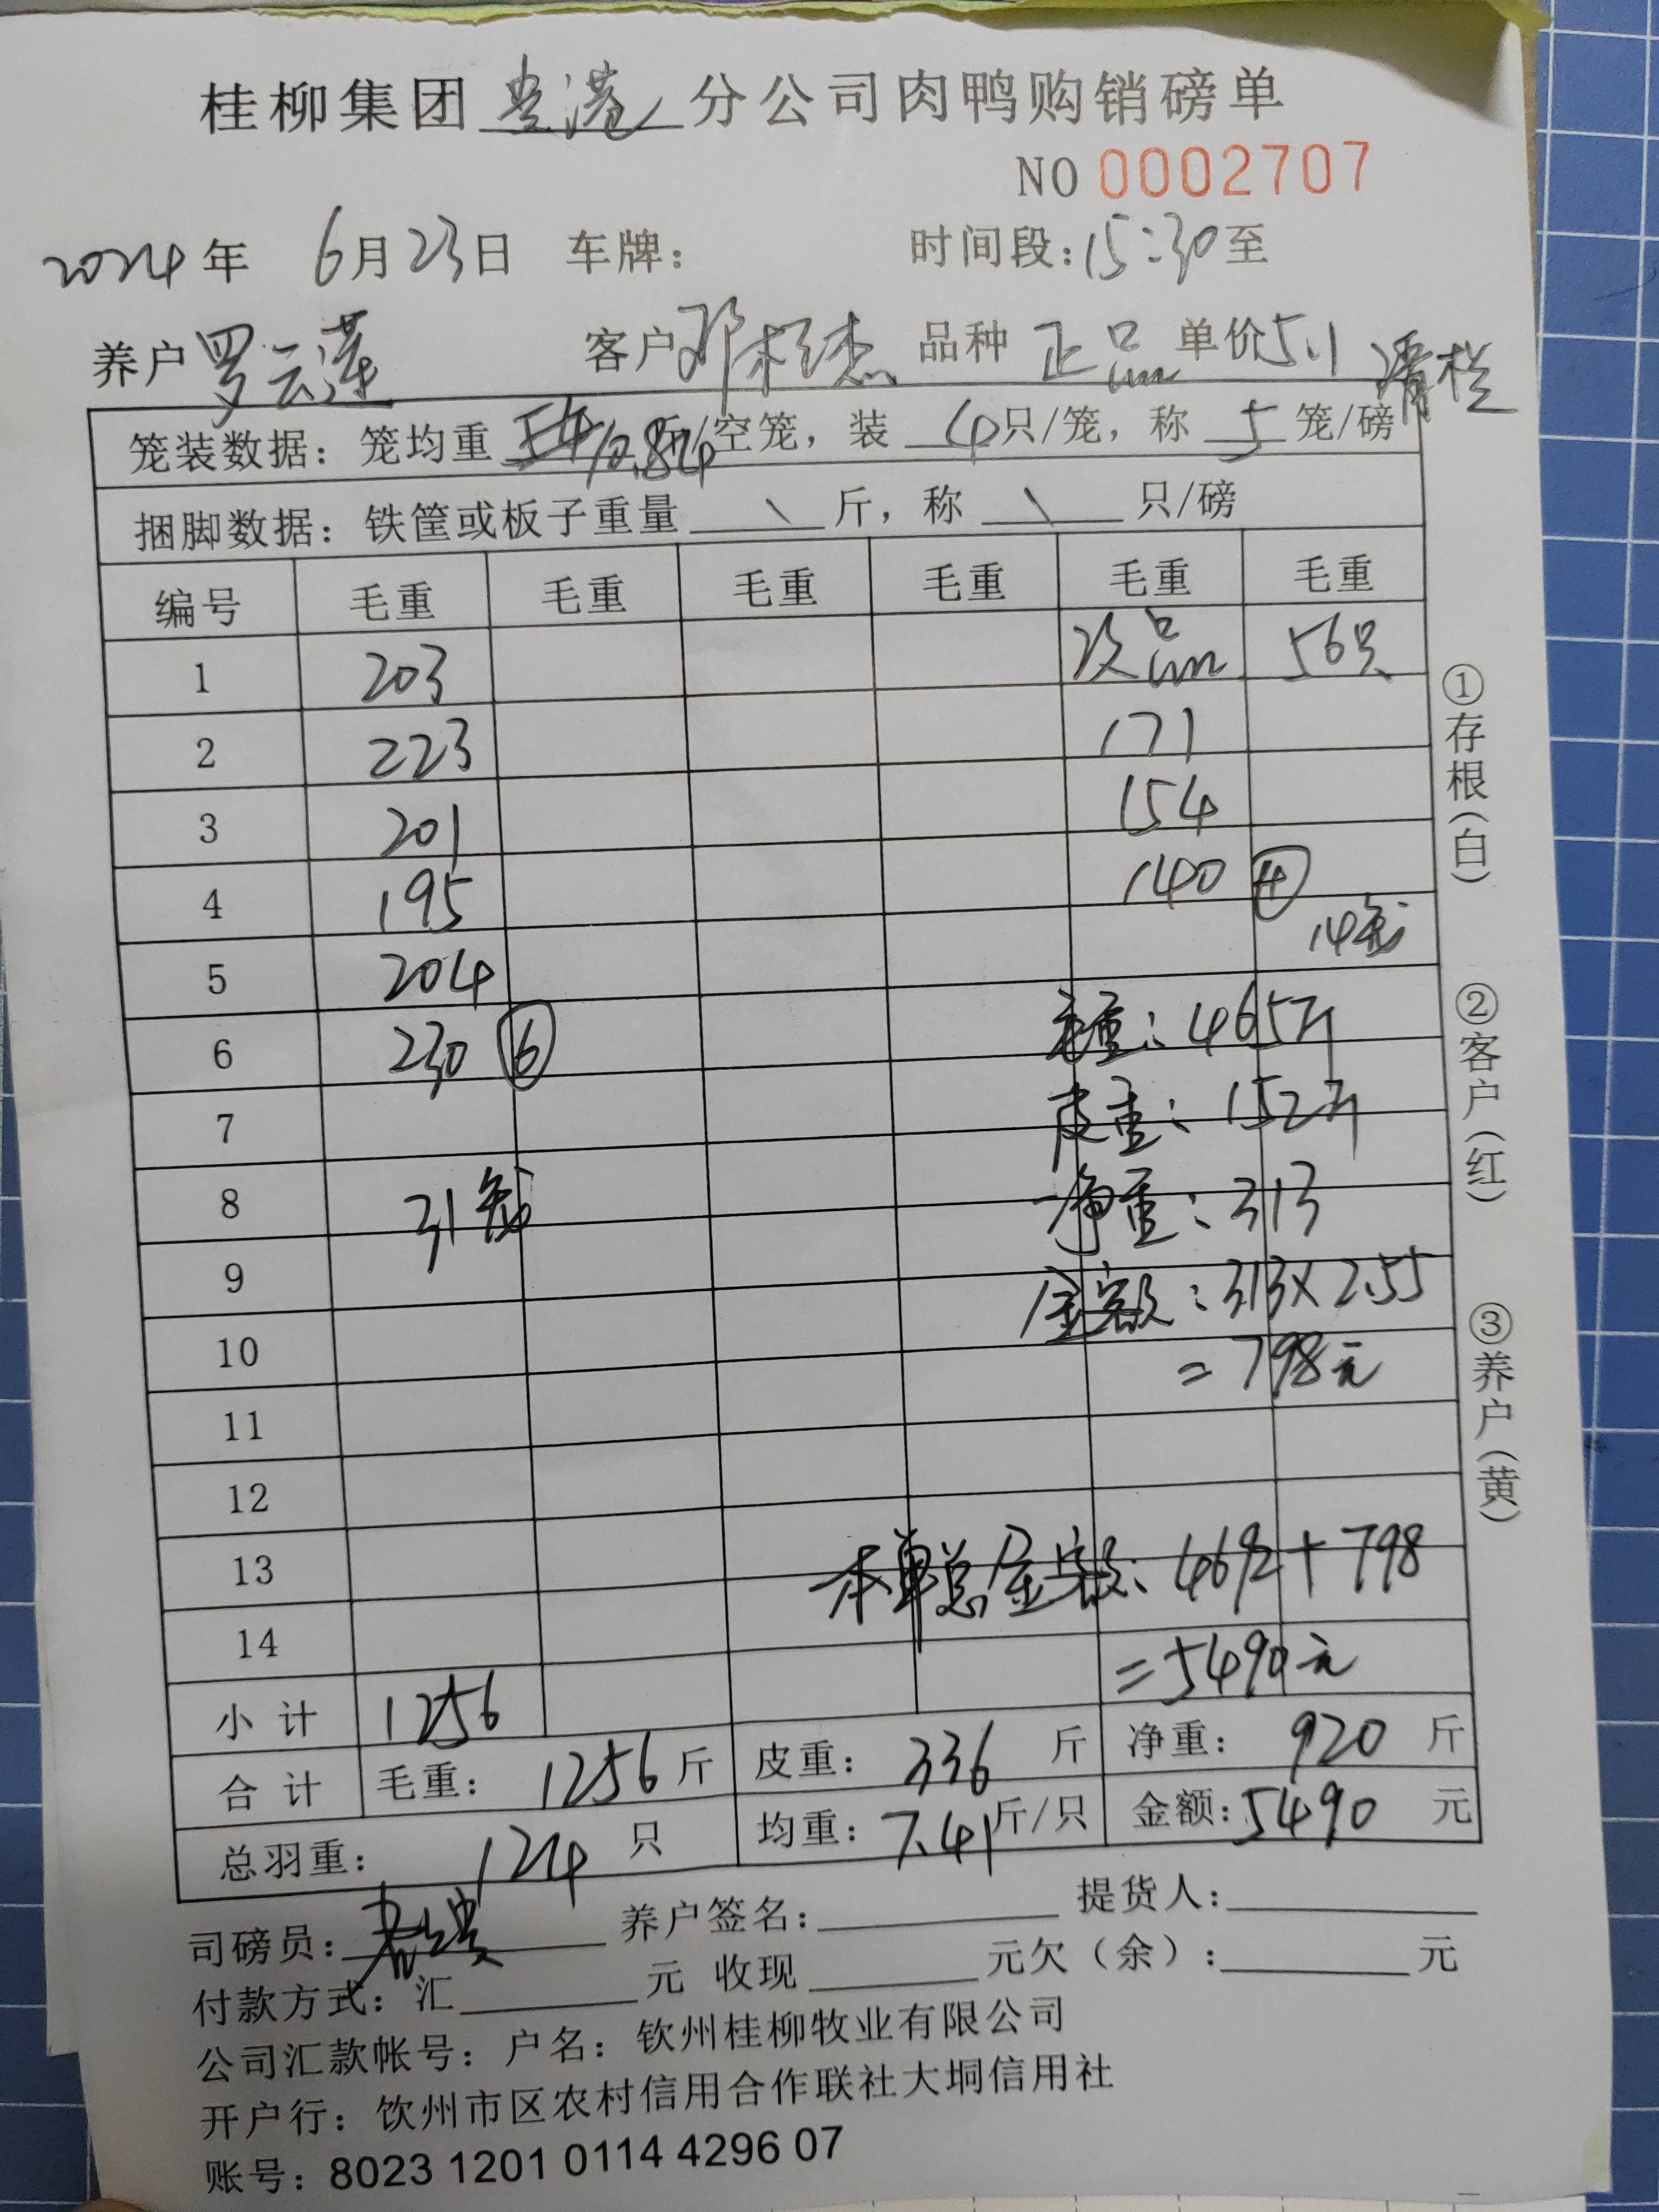 桂柳集团 贵港 分公司肉鸭购销磅单
NO 0002707
2024年 6月23日 车牌: 时间段:15:30至
养户 罗云莲 客户 邓 杰 品种 正品 单价5.1 清栏
笼装数据: 笼均重 /10.84 斤/空笼, 装 4只/笼, 称 5 笼/磅
捆脚数据: 铁筐或板子重量 \ 斤, 称 \ 只/磅
编号 毛重 毛重 毛重 毛重 毛重 毛重
1 203 次品 56只
2 223 171
3 201 154
4 195 140 ④
5 204 14笼
6 230 ⑥ 毛重: 465斤
7 皮重: 152斤
8 31笼 净重: 313
9 金额: 313×2.55
10 =798元
11
12
13 本单总金额: 4692+798
14 =5490元
小计 1256
合计 毛重: 1256斤 皮重: 336 斤 净重: 920 斤
总羽重: 124 只 均重: 7.41斤/只 金额: 5490 元
司磅员: 养户签名: 提货人:
付款方式: 汇 元 收现 元欠(余): 元
公司汇款帐号: 户名: 钦州桂柳牧业有限公司
开户行: 钦州市区农村信用合作联社大垌信用社
账号: 8023 1201 0114 4296 07
①存根(白)
②客户(红)
③养户(黄)